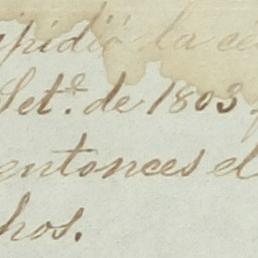 expidió la cé
Set.e de 1803
entonces el
hos.